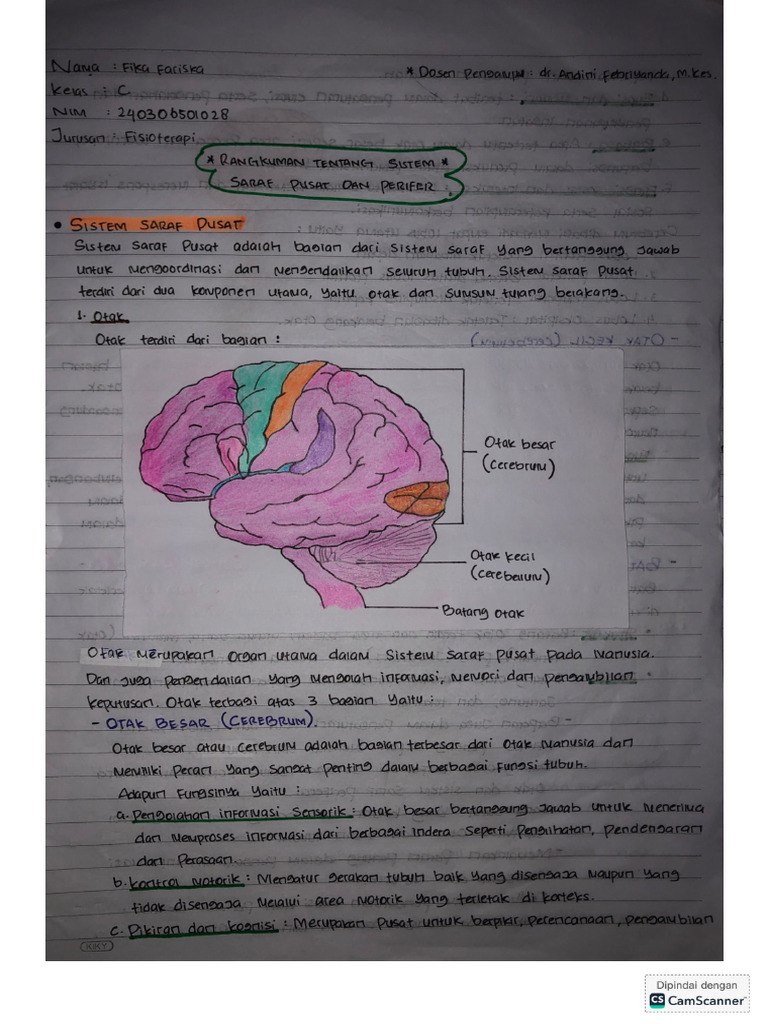 Nama : Fika Fariska
* Dosen Pengampu : dr. Andini Febriyanda, M.Kes.
Kelas : C
NIM : 240306501028
Jurusan : Fisioterapi
* RANGKUMAN TENTANG SISTEM *
SARAF PUSAT DAN PERIFER
• SISTEM SARAF PUSAT
Sistem saraf pusat adalah bagian dari sistem saraf yang bertanggung jawab
untuk mengoordinasi dan mengendalikan seluruh tubuh. Sistem saraf pusat
terdiri dari dua komponen utama, yaitu otak dan sumsum tulang belakang.
1. Otak
Otak terdiri dari bagian :
Otak besar
(cerebrum)
Otak kecil
(cerebellum)
Batang otak
Otak merupakan organ utama dalam sistem saraf pusat pada manusia.
Dan juga pengendalian yang mengolah informasi, memori dan pengambilan
keputusan. Otak terbagi atas 3 bagian yaitu :
- OTAK BESAR (CEREBRUM).
Otak besar atau cerebrum adalah bagian terbesar dari otak manusia dan
memiliki peran yang sangat penting dalam berbagai fungsi tubuh.
Adapun fungsinya yaitu :
a. Pengolahan informasi sensorik : Otak besar bertanggung jawab untuk menerima
dan memproses informasi dari berbagai indera seperti penglihatan, pendengaran
dan perasaan.
b. Kontrol motorik : Mengatur gerakan tubuh baik yang disengaja maupun yang
tidak disengaja melalui area motorik yang terletak di korteks.
c. Pikiran dan kognisi : Merupakan pusat untuk berpikir, perencanaan, pengambilan
KIKY
Dipindai dengan
CS CamScanner